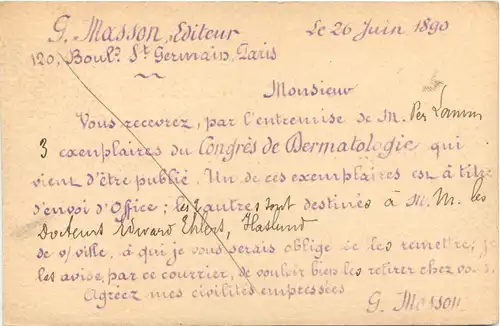 G. Masson, Editeur Le 26 Juin 1890
120, Boulᵈ. Sᵗ. Germain, Paris
Monsieur
Vous recevrez, par l'entremise de M. Per Lamm
3 exemplaires du Congrès de Dermatologie qui
vient d'être publié. Un de ces exemplaires est à titre
d'envoi d'Office; les 2 autres sont destinés à M. M. les
Docteurs Edward Ehlers, Haslund
de v/ ville, à qui je vous serais obligé de les remettre; je
les avise, par ce courrier, de vouloir bien les retirer chez vous.
Agréez mes civilités empressées
G. Masson